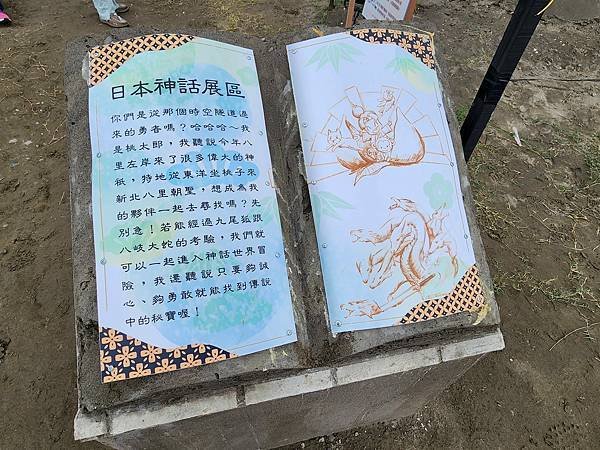 日本神話展區
你們是從那個時空隧道過
來的勇者嗎？哈哈哈～我
是桃太郎，我聽說今年八
里左岸來了很多偉大的神
祇，特地從東洋坐桃子來
新北八里朝聖，想成為我
的夥伴一起去尋找嗎？先
別急！若能經過九尾狐跟
八岐大蛇的考驗，我們就
可以一起進入神話世界冒
險，我還聽說只要夠誠
心、夠勇敢就能找到傳說
中的秘寶喔！